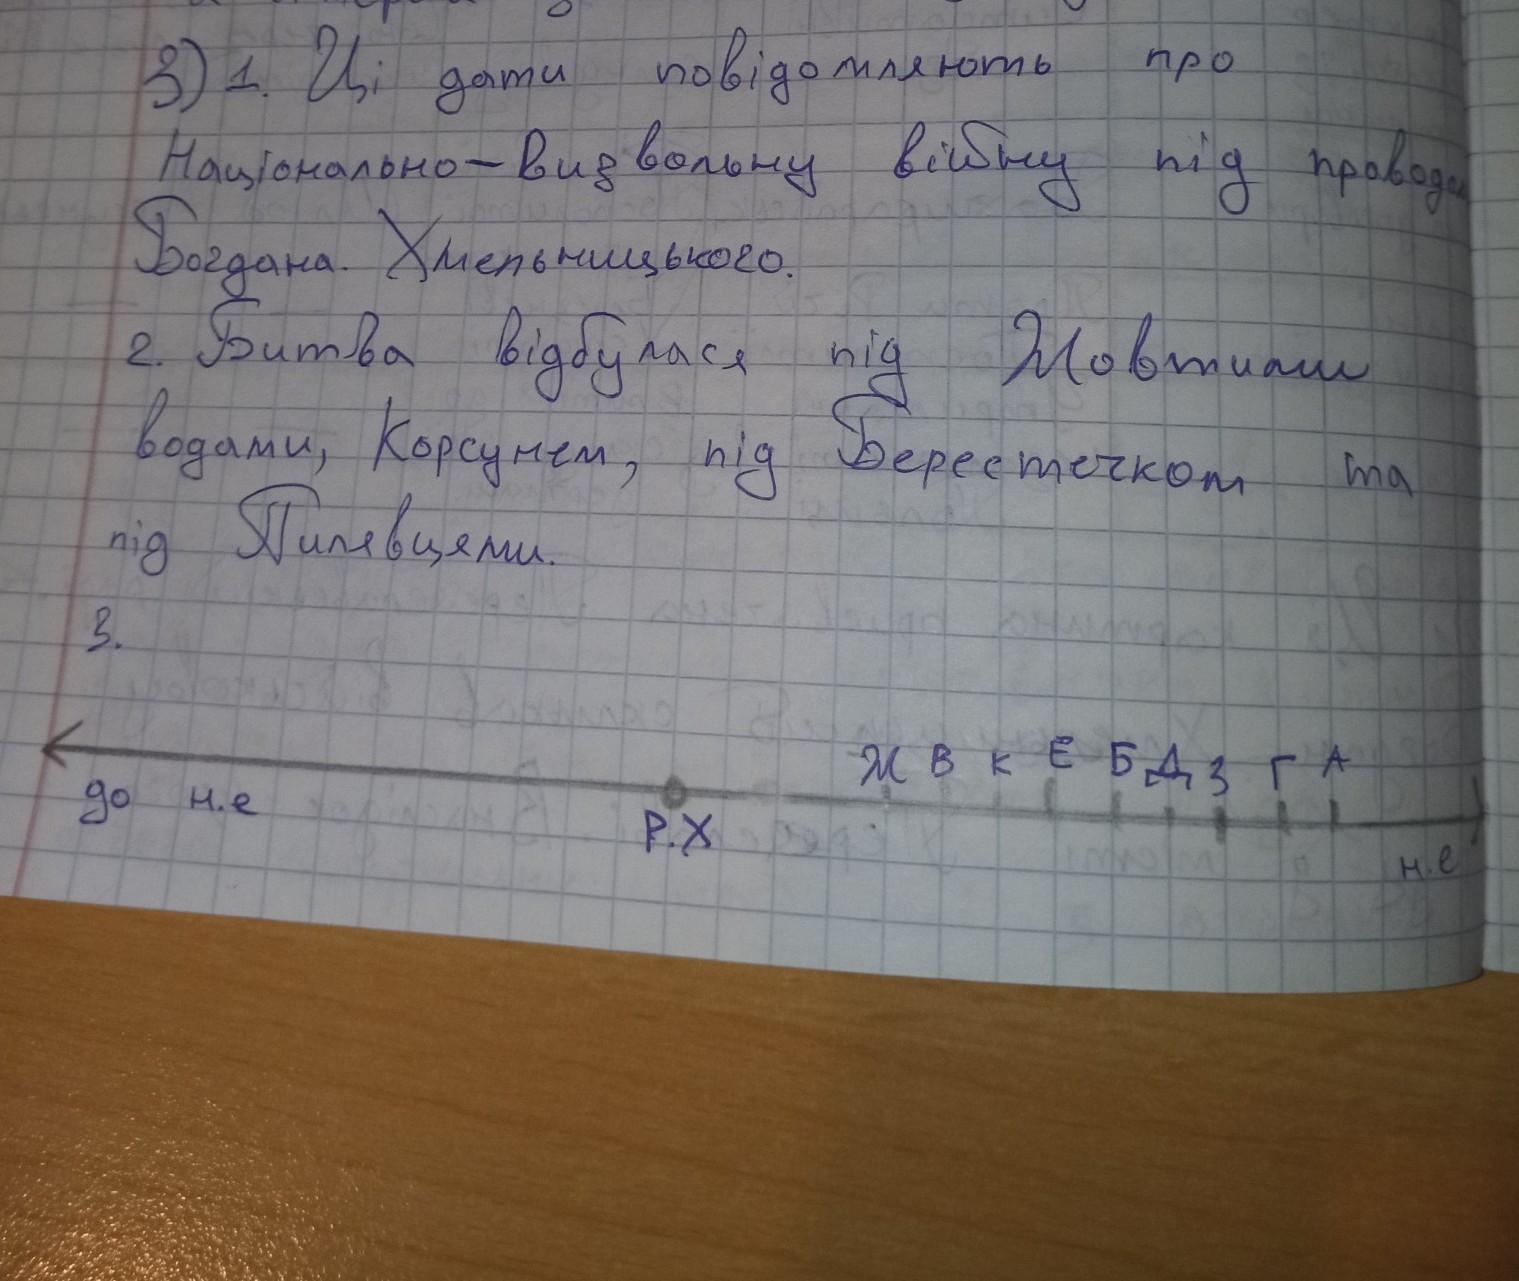 3) 1. Ці дати повідомляють про
Національно-визвольну війну під проводом
Богдана. Хмельницького.
2. Битва відбулася під Жовтими
водами, Корсунем, під Берестечком та
під Пилявцями.
3.
Ж В К Е Б Д З Г А
до н.е Р.Х н.е